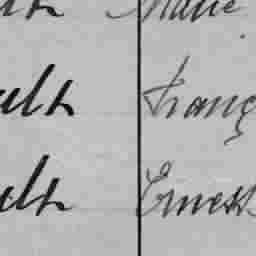 ult Marie
ult Franç
ult Ernest